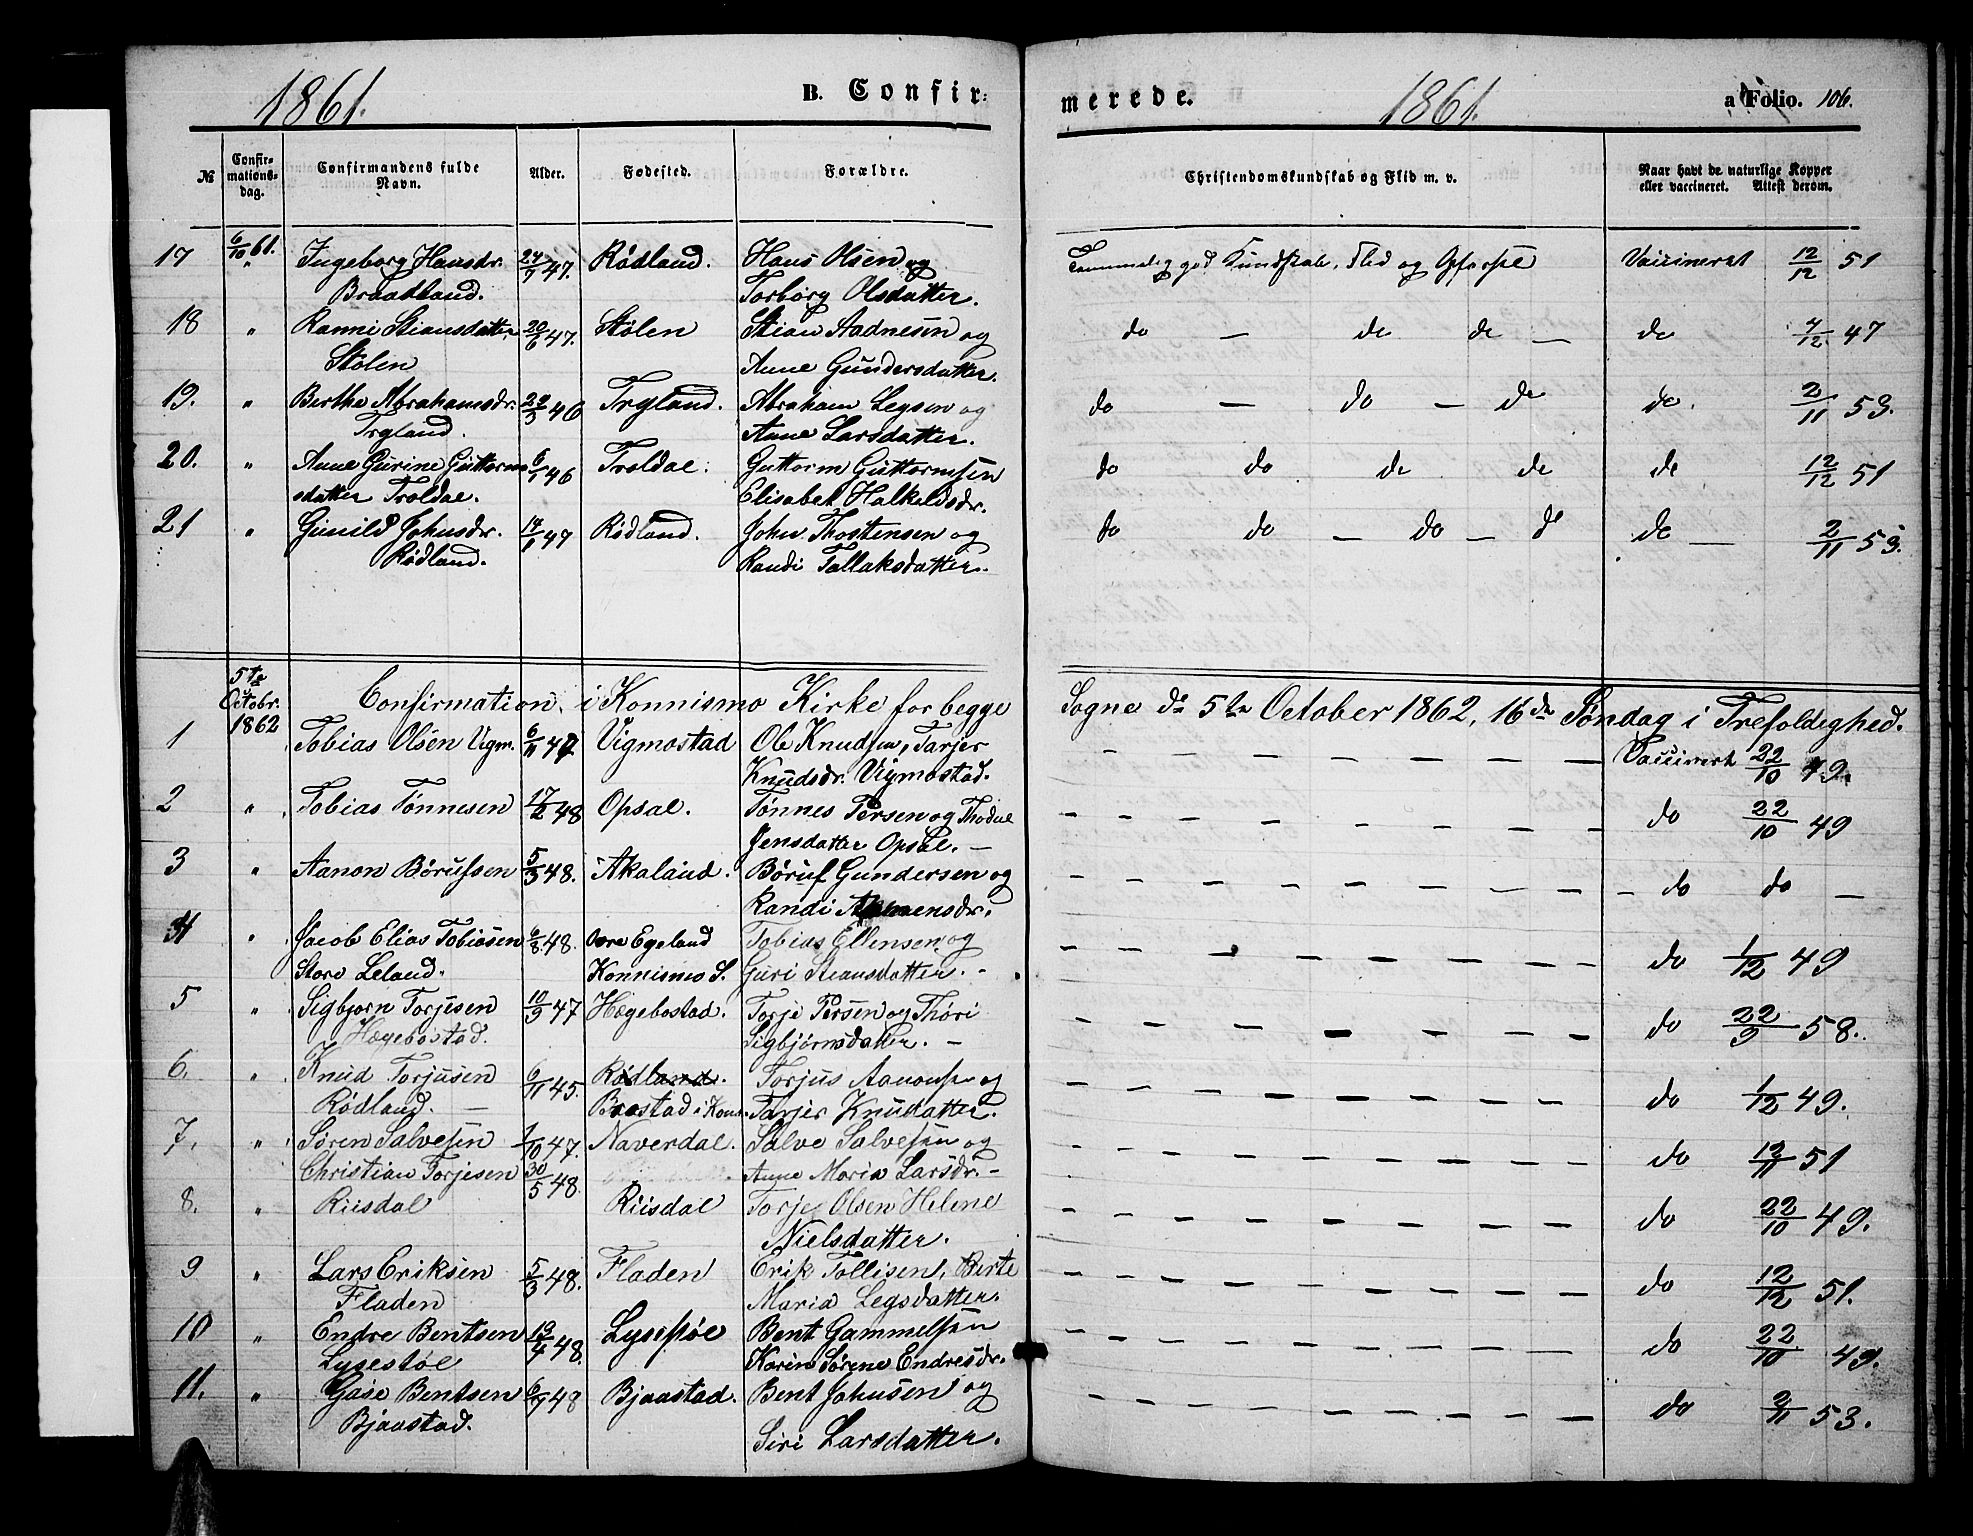 1861. B. Confir-
merede. 1861. Folio. 106.
№ Confirmations-dag. Confirmandens fulde Navn. Alder. Fødested. Forældre. Christendomskundskab og Flid m. v. Naar havt de naturlige Kopper eller vaccineret. Attest derom.
17 6/10 61. Ingeborg Hansdr. 24/7 47. Rødland. Hans Olsen og god Kundskab, Flid og Opførsel Vaccineret 12/12 51
Braadland. Torborg Olsdatter.
18 " Ranni Stiansdatter 20/6 47. Stølen Stian Aadnesen og do — do do — do 4/12 47
Stølen Anne Gundersdatter.
19. " Berthe Abrahamsdr. 22/3 46 Trgland. Abraham Legsen og do — do — do do. 2/11 53.
Trgland. Anne Larsdatter.
20. " Anne Gurine Guttorms 6/1 46 Troldal. Guttorm Guttormsen do do do do do 12/12 51
datter Troldal. Elisabet Halkeldsdr.
21 " Gunild Johnsdr. 14/1 47 Rødland. John Thostensen og do do — do — do do — 2/11 53.
Rødland. Randi Tallaksdatter.
5te Octobr. 1862
Confirmation i Konnismo Kirke for begge Sogne d. 5te October 1862, 16de Søndag i Trefoldighed.
1 Tobias Olsen Vigm. 6/11 47 Vigmostad Ole Knudsen, Tarjer — — — — — — — — Vaccineret 22/10 49.
Knudsdr. Vigmostad.
2 " Tobias Tønnesen 17/2 48 Opsal. Tønnes Persen og Thodul — — — — — — — — do 22/10 49
Jensdatter Opsal. —
3 " Aanon Børufsen 5/3 48. Akaland. Børuf Gundersen og — — — — — — — — — do do —
Randi
4 " Jacob Elias Tobiasen 6/8 48. Øvre Egeland Tobias Ellensen og — — — — — — — — do 1/12 49
Store Leland. Konnismo S. Guri Steansdatter. -
5 " Sigbjørn Torjesen 10/9 47 Hægebostad. Torje Persen og Thøri — — — — — — — — do 22/9 58.
Hægebostad. Sigbjørnsdatter. —
6. " Knud Torjusen 6/11 45. Rødland. Torjus Aanonsen og — — — — — — — — do 1/12 49.
Rødland. — Braastad i Kon. Tarjer Knudatter.
7. " Søren Salvesen 1/10 47. Naverdal. Salve Salvesen og — — — — — — — — do 12/11 51
Christian Torjesen 30/5 48. Anne Maria Larsdr. -
8. " Riisdal Riisdal Torje Olsen Helene — — — — — — — — do 22/10 49.
Nielsdatter.
9 " Lars Eriksen 5/3 48. Fladen Erik Tollisen, Berte — — — — — — — — do 12/12 51.
Fladen Maria Legsdatter.
10 " Endre Bentsen 13/4 48. Lysestøl Bent Gammelsen — — — — — — — — do 22/10 49.
Lysestøl Karen Sørene Endresdr.
11. " Gase Bentsen 6/9 48 Bjaastad. Bent Johnsen og — — — — — — — — do 2/11 53.
Bjaastad. Siri Larsdatter.